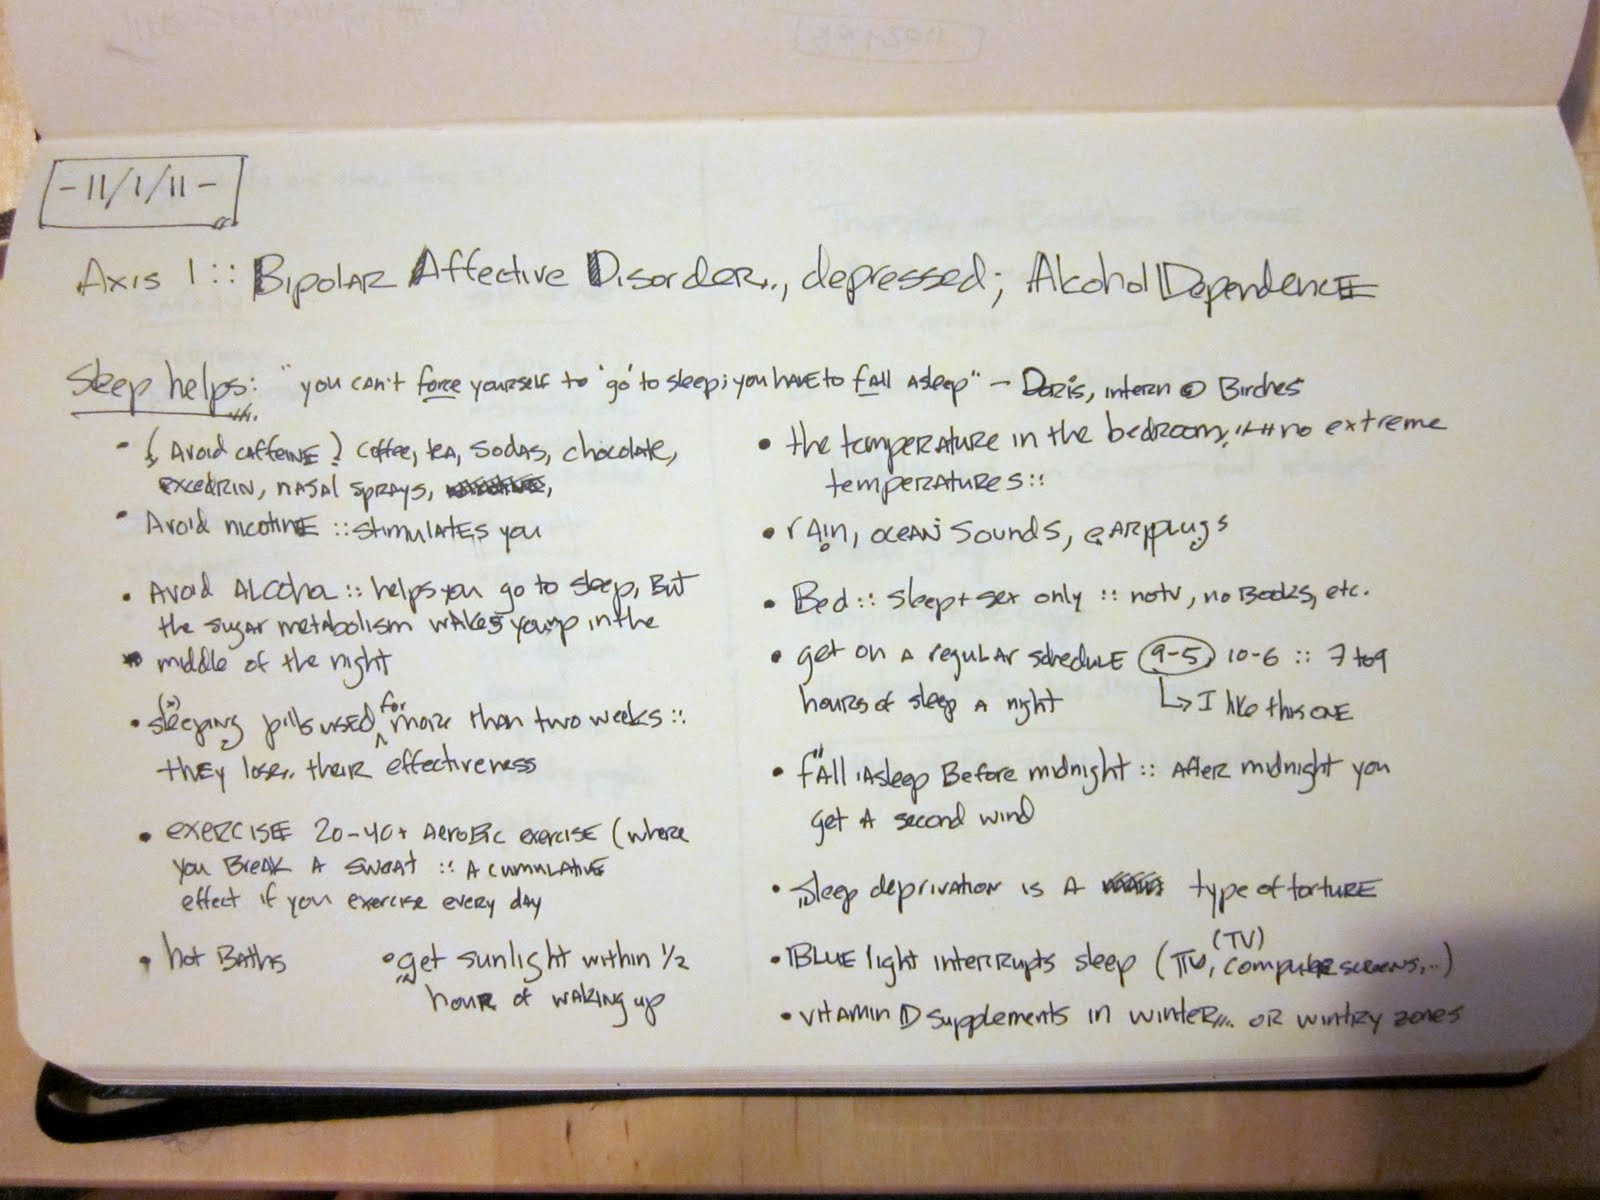 -11/1/11-
Axis 1:: Bipolar Affective Disorder.., depressed; Alcohol Dependence
Sleep helps: "you can't force yourself to 'go' to sleep; you have to fall asleep" - Doris, intern @ Birches
• (Avoid caffeine) coffee, tea, sodas, chocolate,
excedrin, nasal sprays,
• Avoid nicotine :: stimulates you
• Avoid Alcohol :: helps you go to sleep, But
the sugar metabolism wakes you up in the
middle of the night
• sleeping pills used for more than two weeks ::
they lose.. their effectiveness
• exercise 20-40+ Aerobic exercise (where
you Break a sweat :: A cumulative
effect if you exercise every day
• hot Baths
• get sunlight within 1/2
hour of waking up
• the temperature in the bedroom, no extreme
temperatures ::
• rain, ocean sounds, earplugs
• Bed :: sleep + sex only :: no tv, no Books, etc.
• get on a regular schedule 9-5, 10-6 :: 7 to 9
hours of sleep a night
↳ I like this one
• fall asleep Before midnight :: After midnight you
get a second wind
• Sleep deprivation is a type of torture
• Blue light interrupts sleep (TV, computer screens,..)
(TV)
• vitamin D supplements in winter,... or wintry zones